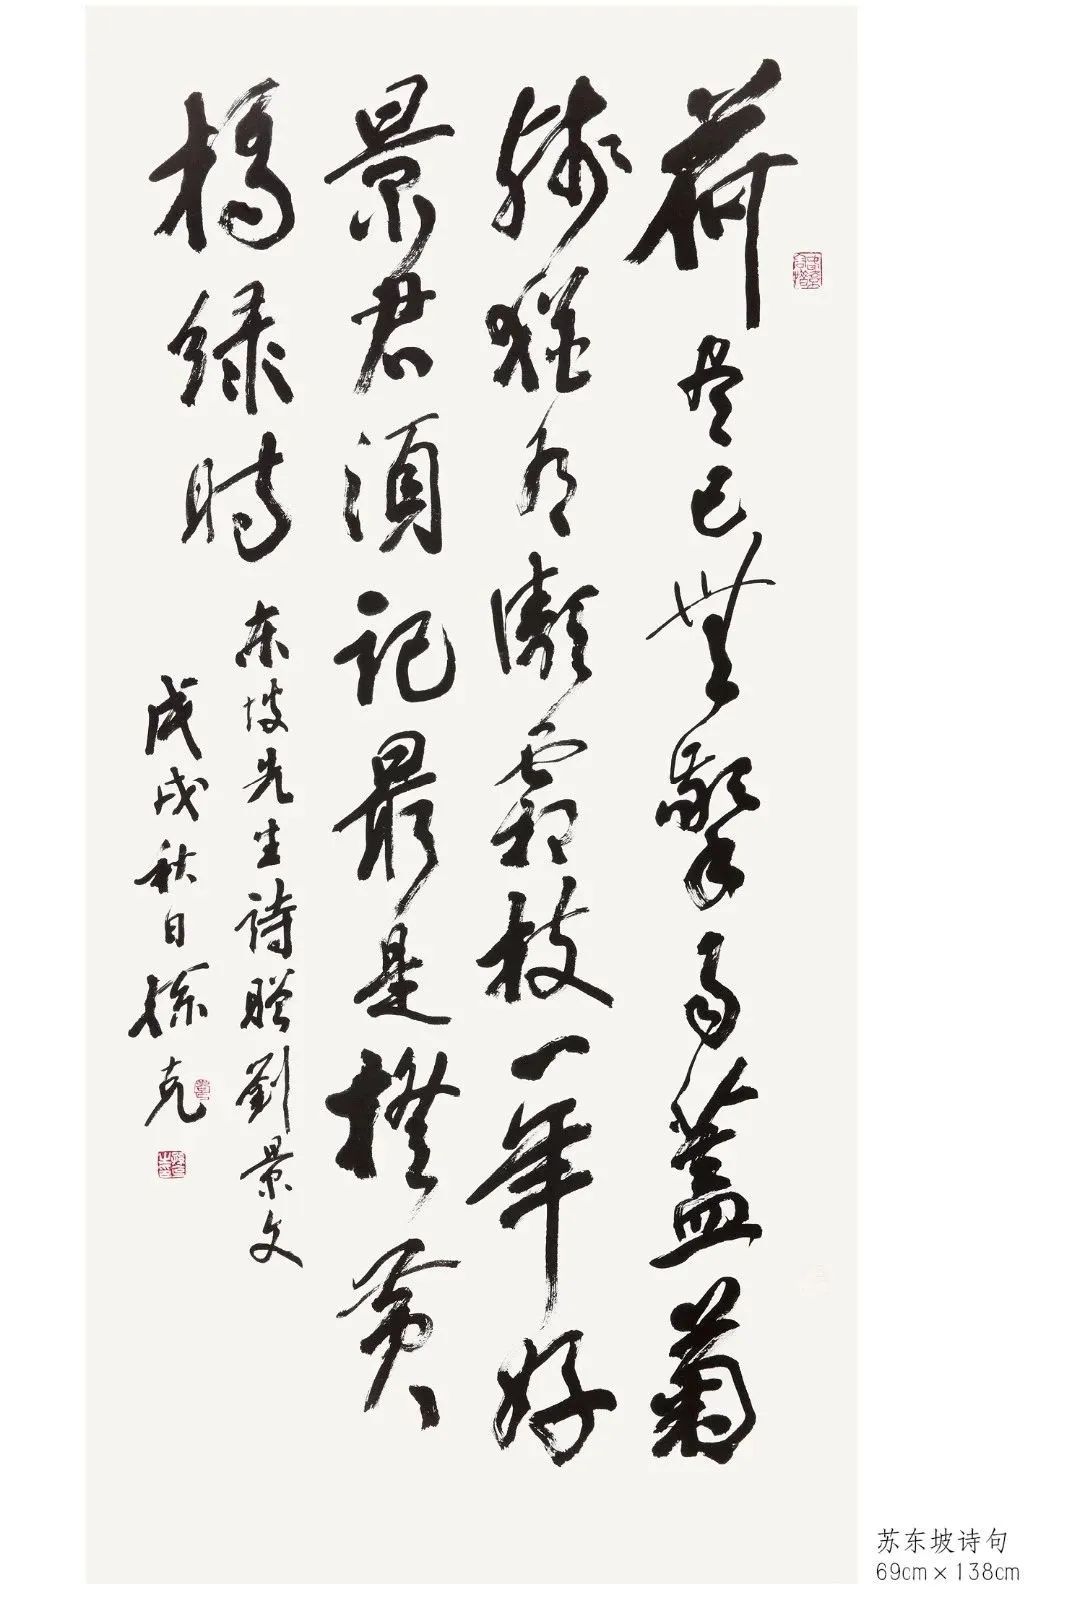 荷尽已無擎雨蓋菊
殘猶有傲霜枝一年好
景君須記最是橙黄
橘緑時
东坡先生詩贈劉景文
戊戌秋日孫克
苏东坡诗句
69cm×138cm